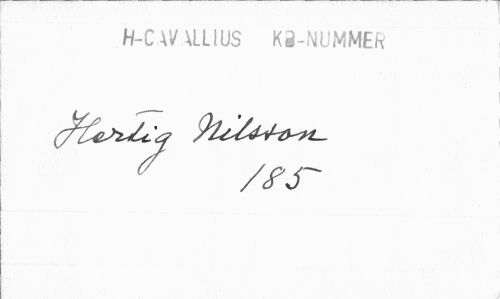 H-CAVALLIUS KB-NUMMER
Hertig Nilsson
185